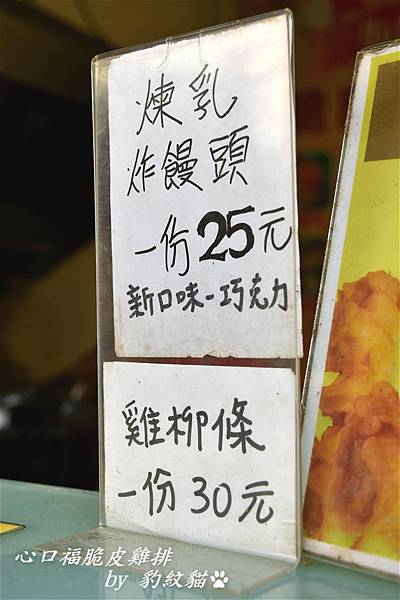 煉乳
炸饅頭
一份25元
新口味-巧克力
雞柳條
一份30元
心口福脆皮雞排
by 豹紋貓